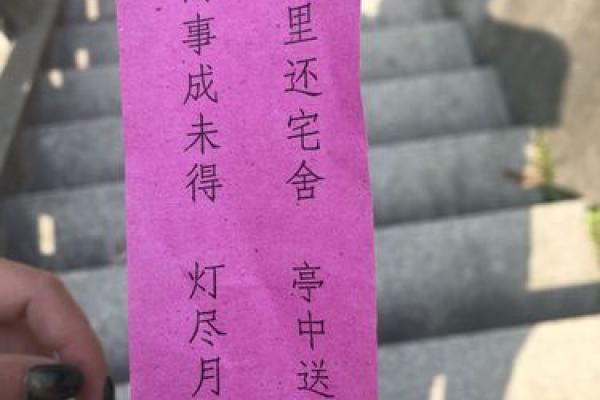 里还宅舍 亭中送
事成未得 灯尽月